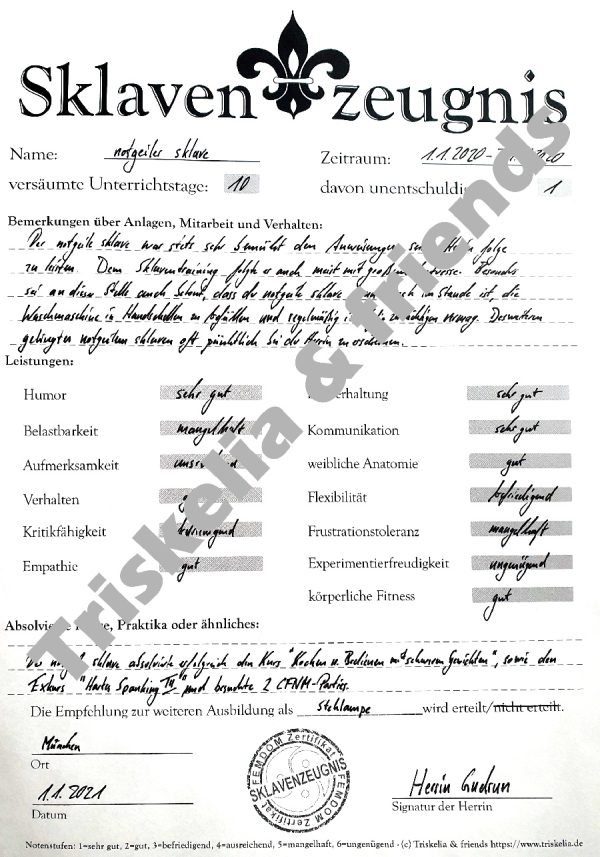 Sklavenzeugnis
Name: notgeiler sklave Zeitraum: 1.1.2020 -
versäumte Unterrichtstage: 10 davon unentschuldig 1
Bemerkungen über Anlagen, Mitarbeit und Verhalten:
Der notgeile sklave war stets sehr bemüht den Anweisungen folge
zu leisten. Dem Sklaventraining folgte er auch meist mit großem
sei an dieser Stelle auch betont, dass der notgeile sklave im Stande ist, die
Waschmaschine in Handschellen zu befüllen und regelmäßig vermag. Desweiteren
gelingt es notgeilem sklaven oft pünktlich bei der Herrin zu erscheinen.
Leistungen:
Humor sehr gut haltung sehr gut
Belastbarkeit mangelhaft Kommunikation sehr gut
Aufmerksamkeit weibliche Anatomie gut
Verhalten Flexibilität befriedigend
Kritikfähigkeit befriedigend Frustrationstoleranz mangelhaft
Empathie gut Experimentierfreudigkeit ungenügend
körperliche Fitness gut
Absolvie Praktika oder ähnliches:
sklave absolvierte erfolgreich den Kurs "Kochen u. Bedienen mit schweren Gewichten", sowie den
Exkurs "Hartes Spanking und besuchte 2 CFNM-Parties.
Die Empfehlung zur weiteren Ausbildung als Stehlampe wird erteilt/nicht erteilt.
München
Ort
1.1.2021
Datum
FEMDOM Zertifikat
SKLAVENZEUGNIS
FEMDOM Zertifikat
Herrin Gudrun
Signatur der Herrin
Notenstufen: 1=sehr gut, 2=gut, 3=befriedigend, 4=ausreichend, 5=mangelhaft, 6=ungenügend - (c) Triskelia & friends https://www.triskelia.de
Triskelia & friends